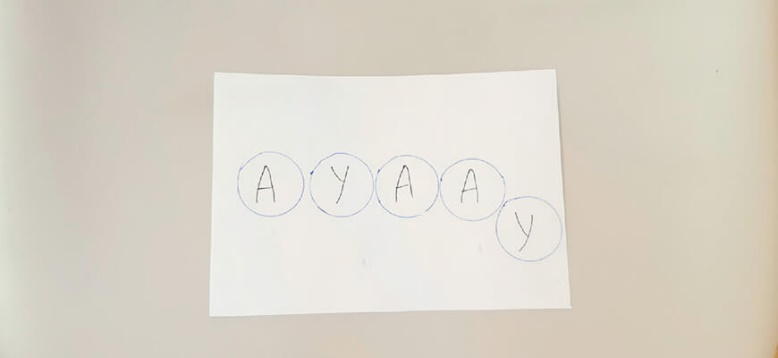 A Y A A Y